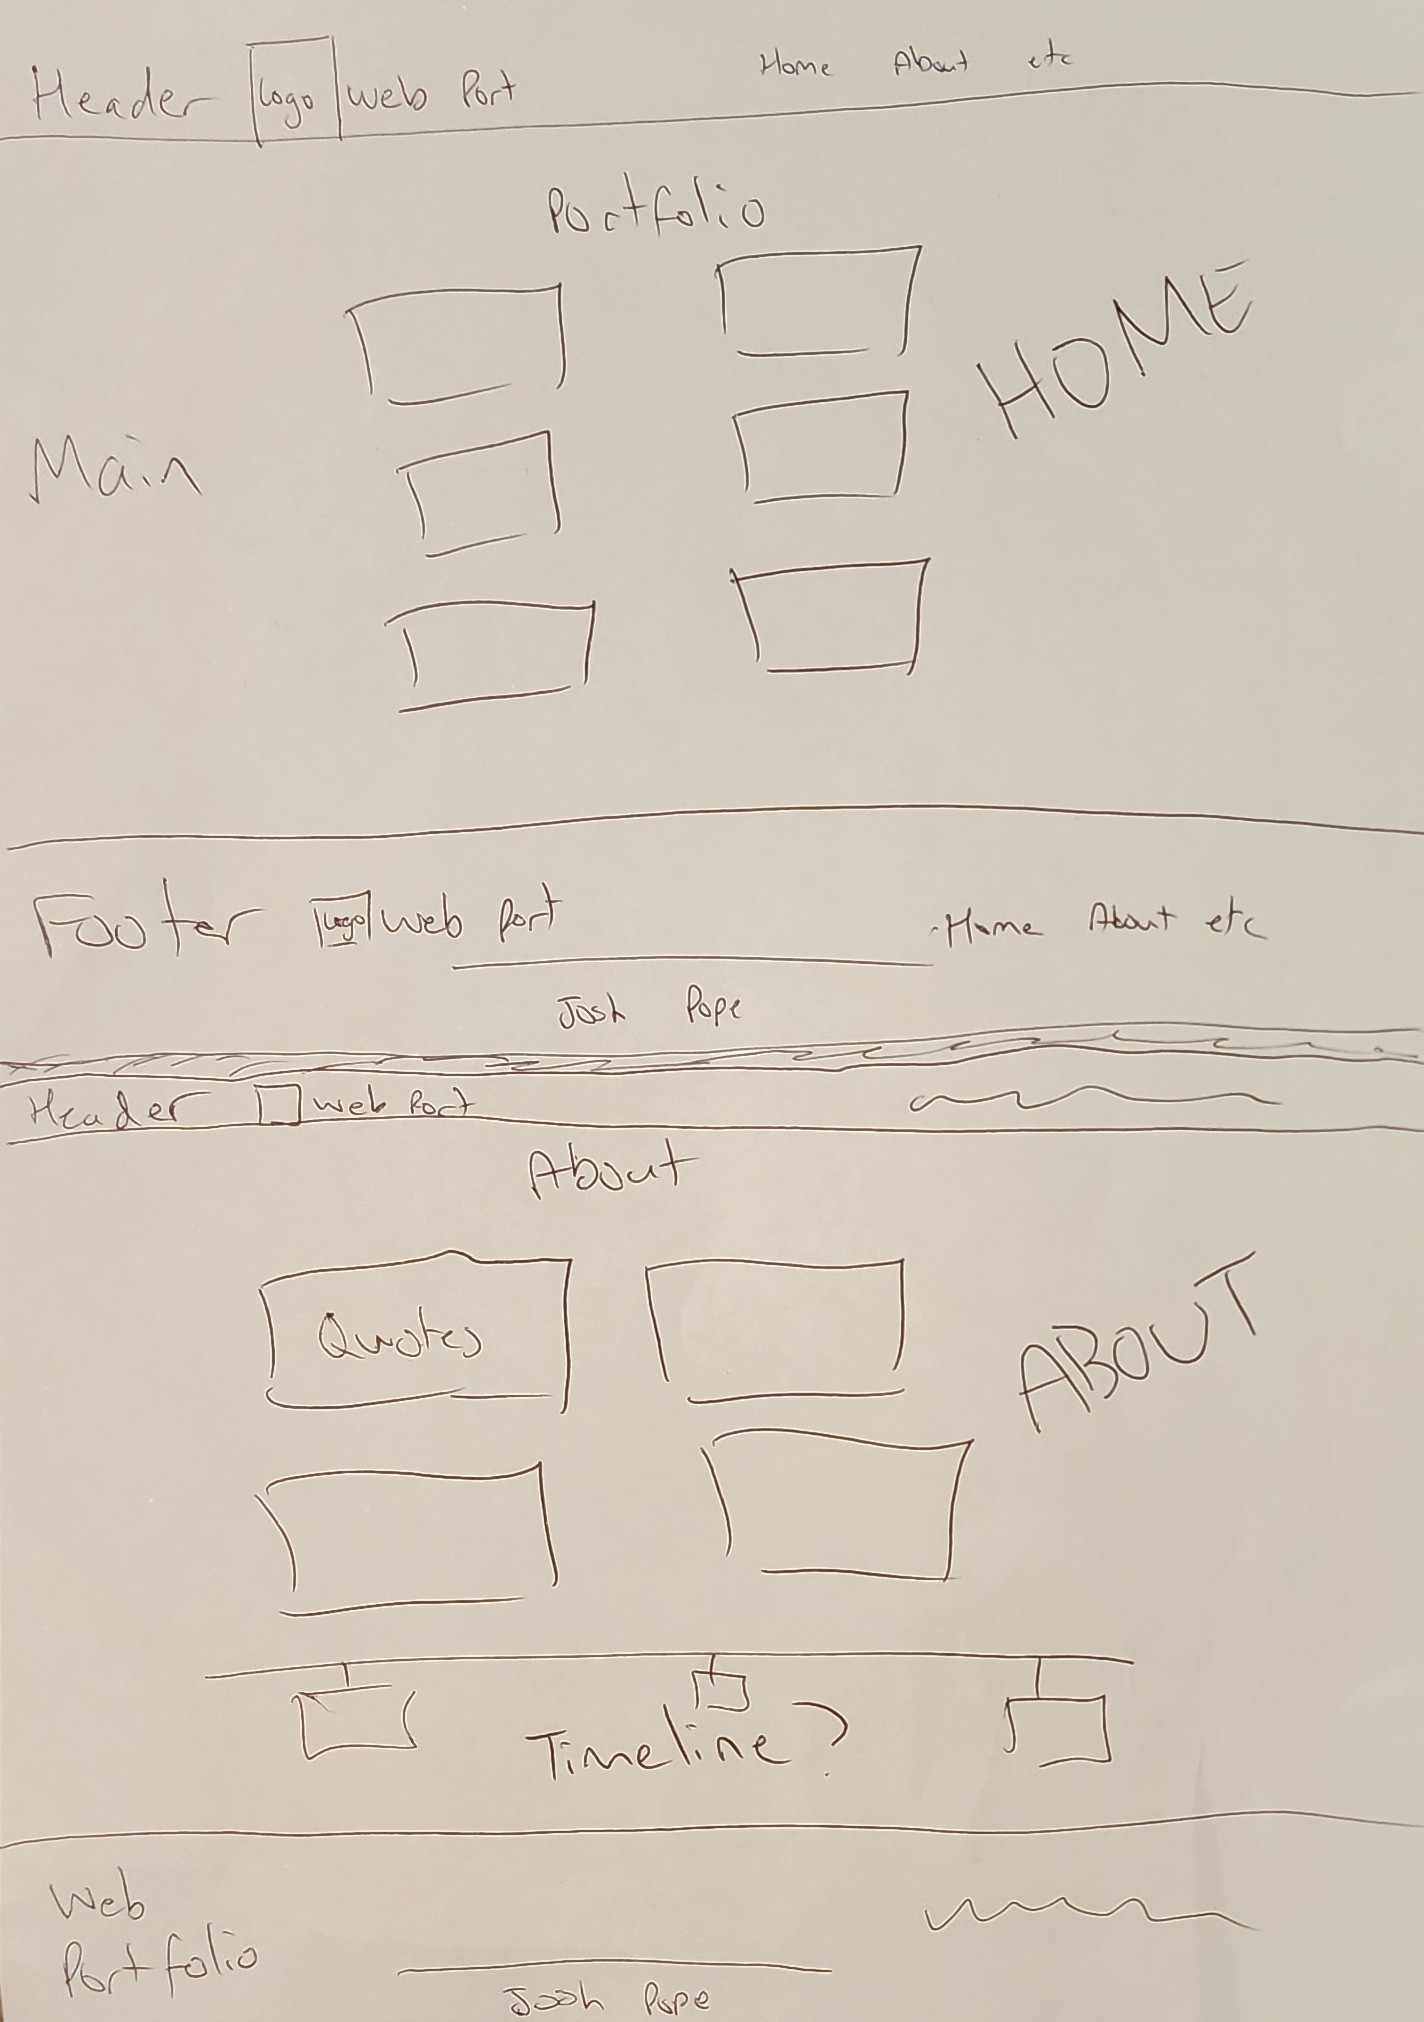 Header Logo Web Port Home About etc
Portfolio
HOME
Main
Footer Logo Web Port Home About etc
Josh Pope
Header Web Port
About
Quotes
ABOUT
Timeline?
Web
Portfolio
Josh Pope